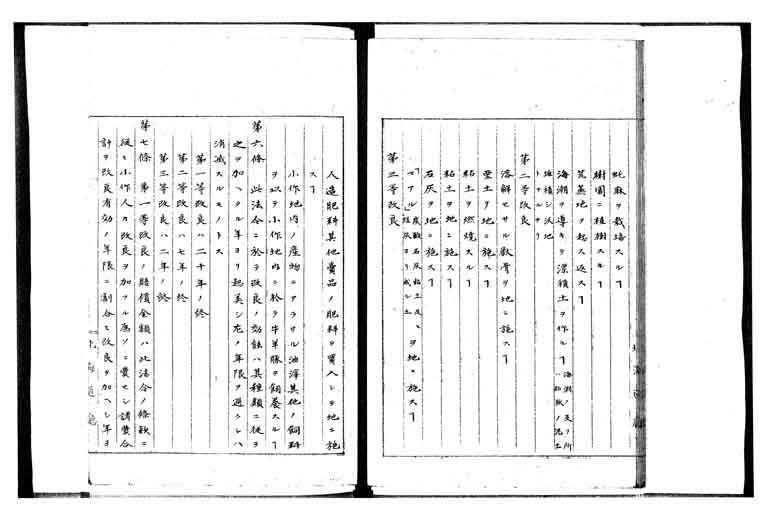 蚍麻ヲ栽培スルヿ
樹園ニ植樹スルヿ
荒蕪地ヲ起シ返スヿ
海潮ヲ導キテ漂積土ヲ作ルヿ 海潮ノ及フ所ハ粘状ノ泥土
堆積シ沃地トナルナリ
第二等改良
溶解セサル獣骨ヲ地ニ施スヿ
堊土ヲ地ニ施スヿ
粘土ヲ燃焼スルヿ
粘土ヲ地ニ施スヿ
石灰ヲ地ニ施スヿ
「マアル」炭酸石灰粘土及ヒ珪灰ヨリ成ル土ヲ地ニ施スヿ
第三等改良
人造肥料其他賣品ノ肥料ヲ買入レテ地ニ施
スヿ
小作地内ノ産物ニアラサル油滓其他ノ飼料
ヲ以テ小作地内ニ於テ牛羊豚ヲ飼養スルヿ
第六條 此法令ニ於テ改良ノ効蝕ハ其種類ニ従ヨ
之ヲ加ヘタル年ヨリ起算シ左ノ年限ヲ過クレハ
消滅スルモノトス
第一等改良ハ二十年ノ終
第二等改良ハ七年ノ終
第三等改良ハ二年ノ終
第七條 第一等改良ノ賠償金額ハ此法令ノ條款ニ
従ヒ小作人カ改良ヲ加フル為ソニ費セシ諸費合
計ヲ改良有効ノ年限ニ割合セ改良ヲ加ヘシ年ヨ
北海道廳